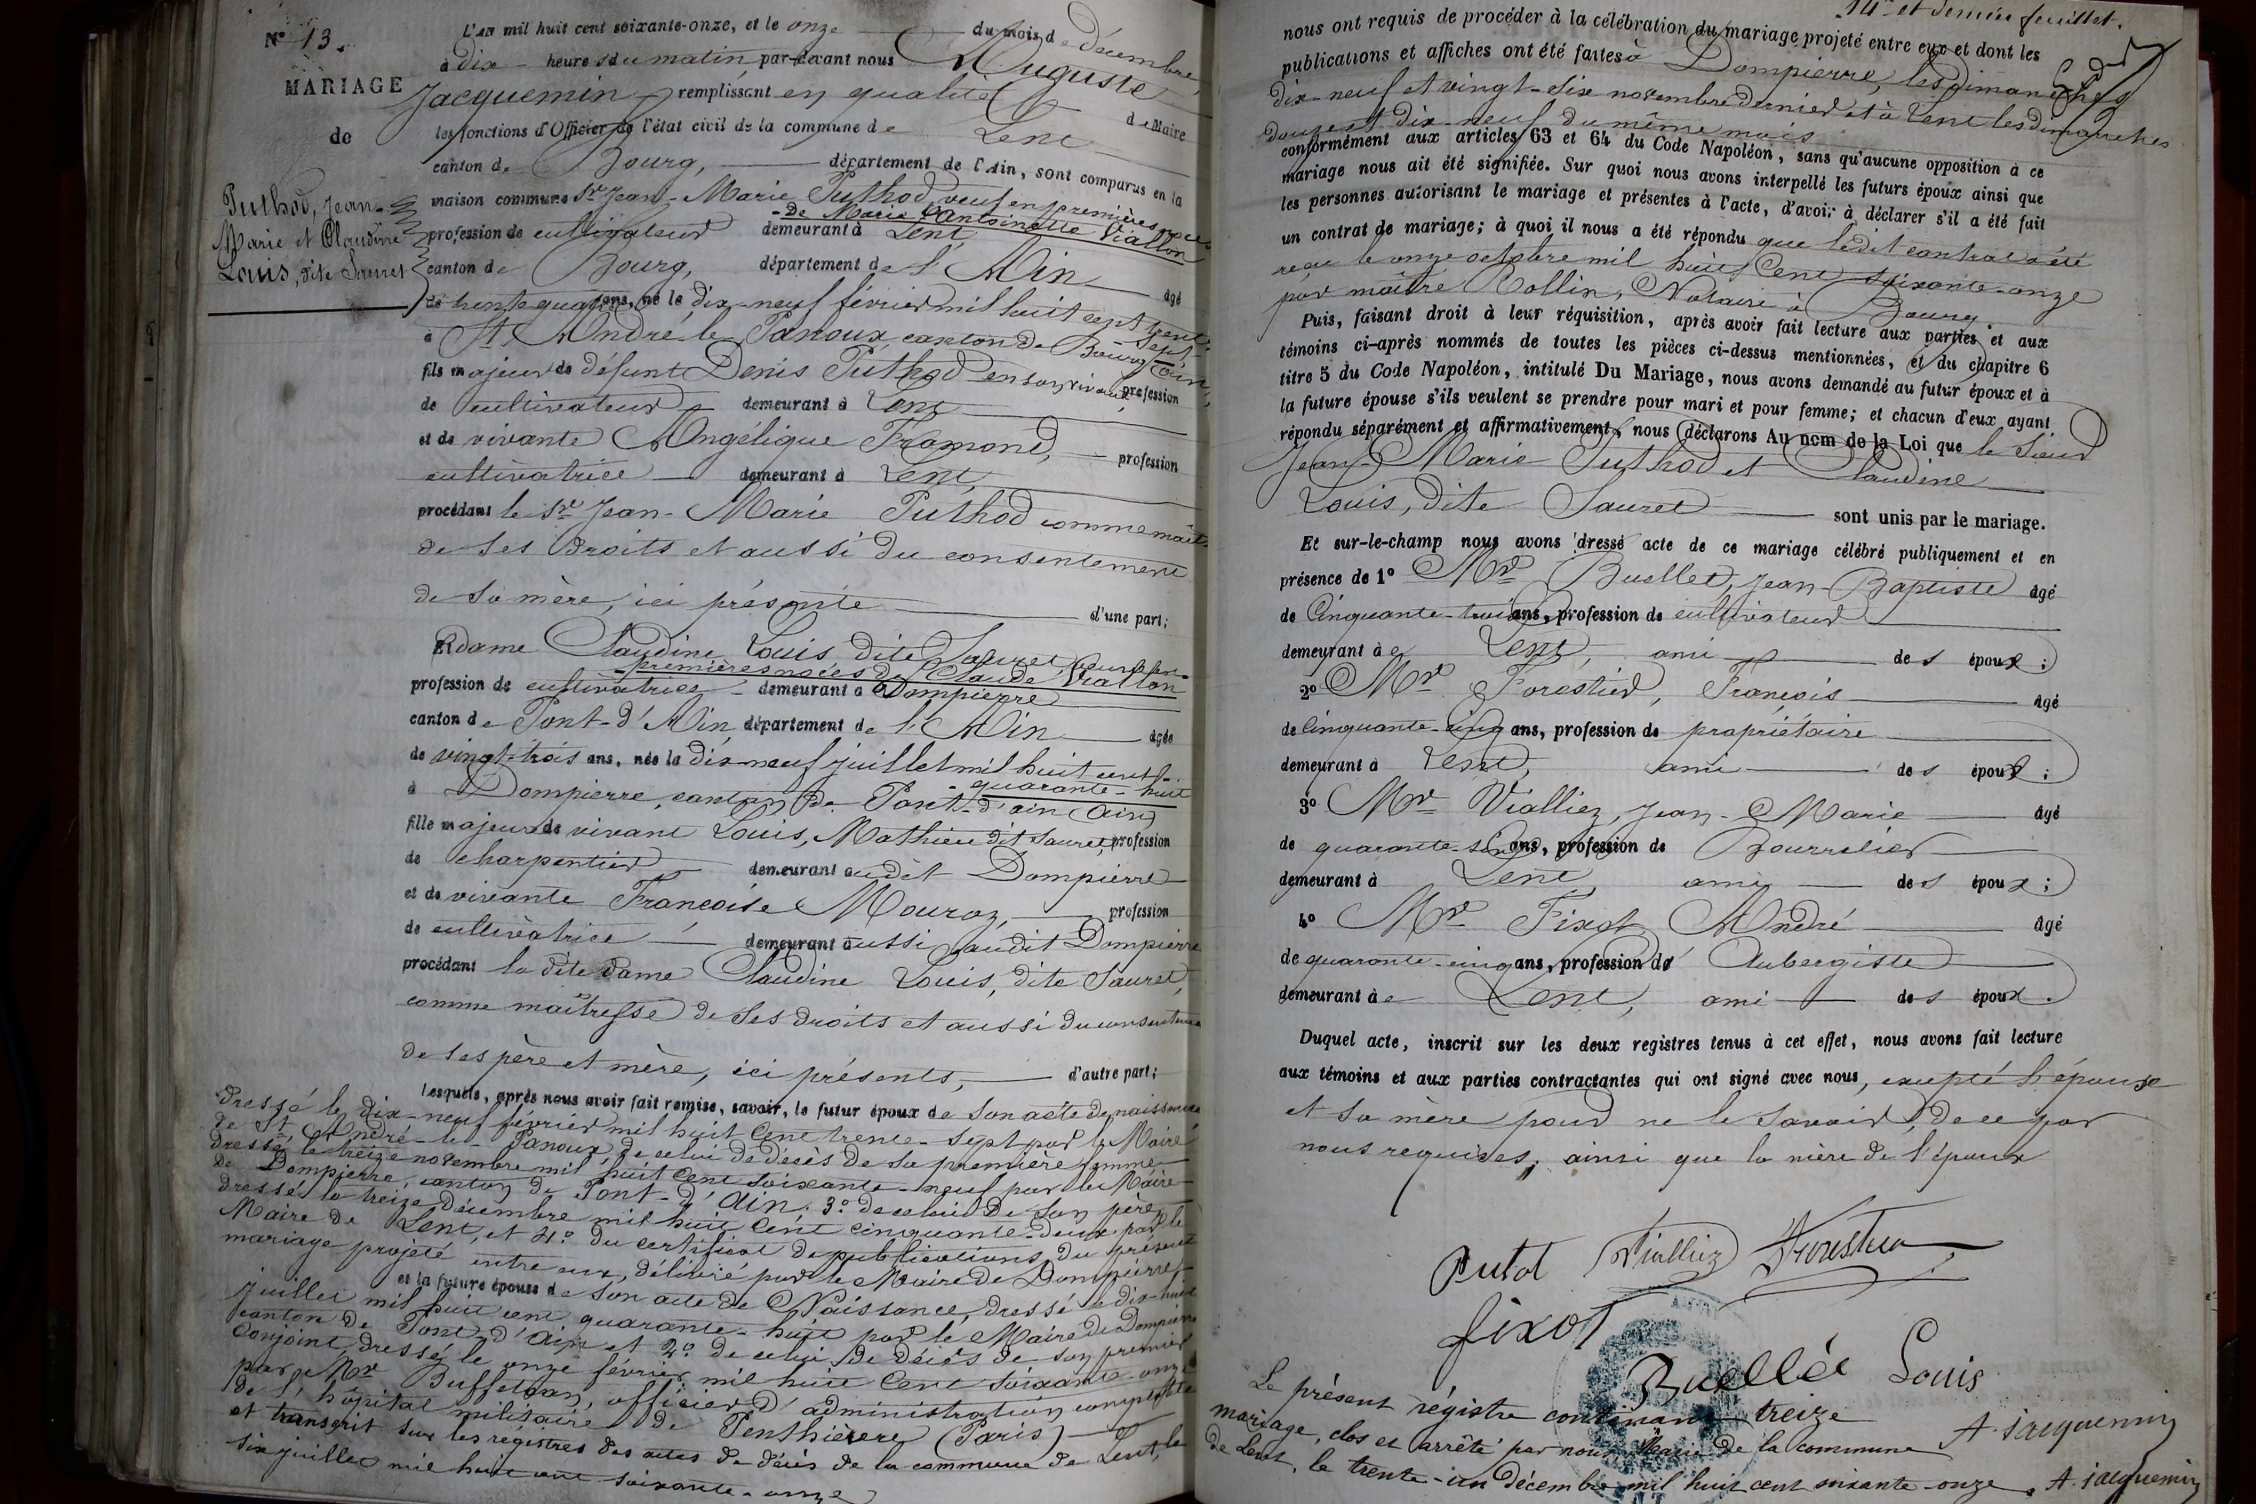 N° 13.
MARIAGE
de
Puthod, Jean-
Marie et Claudine
Louis, dite Sauret
L'an mil huit cent soixante-onze, et le onze du mois de décembre,
à dix heures du matin, par-devant nous Auguste
Jacquemin remplissant en qualité de Maire
les fonctions d'Officier de l'état civil de la commune de Lent
canton de Bourg, département de l'Ain, sont comparus en la
maison commune Sr Jean-Marie Puthod, veuf en premières noces
de Marie Antoinette Viallon
profession de cultivateur demeurant à Lent,
canton de Bourg, département de l'Ain âgé
de trente quatre ans, né le dix-neuf février mil huit cent trente-
sept
à St André-le-Panoux, canton de Bourg (Ain),
fils majeur de défunt Denis Puthod en son vivant, profession
de cultivateur demeurant à Lent
et de vivante Angélique Fromond, profession
cultivatrice demeurant à Lent,
procédant le Sr Jean-Marie Puthod comme maître
de ses droits et aussi du consentement
de sa mère, ici présente d'une part;
Et dame Claudine Louis, dite Sauret veuve en
premières noces de Claude Viallon
profession de cultivatrice demeurant à Dompierre
canton de Pont-d'Ain, département de l'Ain âgée
de vingt-trois ans, née le dix-neuf juillet mil huit cent
quarante-huit
à Dompierre, canton de Pont-d'ain (Ain)
fille majeure de vivant Louis, Mathieu dit Sauret, profession
de charpentier demeurant audit Dompierre
et de vivante Françoise Mouroz, profession
de cultivatrice demeurant aussi audit Dompierre
procédant la dite dame Claudine Louis, dite Sauret,
comme maîtresse de ses droits et aussi du consentement
de ses père et mère, ici présents, d'autre part;
Lesquels, après nous avoir fait remise, savoir, le futur époux de son acte de naissance
dressé le dix-neuf février mil huit cent trente-sept par le Maire
de St André-le-Panoux, de celui de décès de sa première femme
dressé le treize novembre mil huit cent soixante-neuf par le Maire
de Dompierre, canton de Pont-d'Ain. 3° de celui de son père
dressé le treize Décembre mil huit cent cinquante-deux par le
Maire de Lent, et 4° du certificat de publications du présent
mariage projeté entre eux, délivré par le Maire de Dompierre,
et la future épouse de son acte de Naissance, dressé le dix-huit
juillet mil huit cent quarante-huit par le Maire de Dompierre
canton de Pont d'Ain et 2° de celui de décès de son premier
conjoint, dressé le onze février mil huit cent soixante-onze
par Mr officier d'administration comptable
de l'hôpital militaire de Penthièvre (Paris)
et transcrit sur les registres des actes de décès de la commune de Lent, le
six juillet mil huit cent soixante-onze
14e et dernier feuillet.
nous ont requis de procéder à la célébration du mariage projeté entre eux et dont les
publications et affiches ont été faites à Dompierre, les dimanches
dix-neuf et vingt-six novembre dernier et à Lent les dimanches
douze et dix-neuf du même mois
conformément aux articles 63 et 64 du Code Napoléon, sans qu'aucune opposition à ce
mariage nous ait été signifiée. Sur quoi nous avons interpellé les futurs époux ainsi que
les personnes autorisant le mariage et présentes à l'acte, d'avoir à déclarer s'il a été fait
un contrat de mariage; à quoi il nous a été répondu que ledit contrat a été
reçu le onze octobre mil huit cent soixante-onze
par maître Rollin, Notaire à Bourg
Puis, faisant droit à leur réquisition, après avoir fait lecture aux parties et aux
témoins ci-après nommés de toutes les pièces ci-dessus mentionnées, et du chapitre 6
titre 5 du Code Napoléon, intitulé Du Mariage, nous avons demandé au futur époux et à
la future épouse s'ils veulent se prendre pour mari et pour femme; et chacun d'eux ayant
répondu séparément et affirmativement, nous déclarons Au nom de la Loi que le Sieur
Jean-Marie Puthod et Claudine
Louis, dite Sauret sont unis par le mariage.
Et sur-le-champ nous avons dressé acte de ce mariage célébré publiquement et en
présence de 1° Mr Buellet, Jean-Baptiste âgé
de Cinquante-trois ans, profession de cultivateur
demeurant à Lent, ami des époux;
2° Mr Forestier, François âgé
de Cinquante-cinq ans, profession de propriétaire
demeurant à Lent, ami des époux;
3° Mr Vialliez, Jean-Marie âgé
de quarante-six ans, profession de Bourrelier
demeurant à Lent, ami des époux;
4° Mr Fixot André âgé
de quarante-cinq ans, profession de Aubergiste
demeurant à Lent, ami des époux.
Duquel acte, inscrit sur les deux registres tenus à cet effet, nous avons fait lecture
aux témoins et aux parties contractantes qui ont signé avec nous, excepté l'épouse
et sa mère pour ne le savoir, de ce par
nous requises, ainsi que la mère de l'époux
Putot Vialliez Forestier
fixot
Buellet Louis
A. jacquemin
Le présent régistre contenant treize
mariage, clos et arrêté par nous, Maire de la commune
de Lent, le trente-un décembre mil huit cent soixante-onze. A. jacquemin